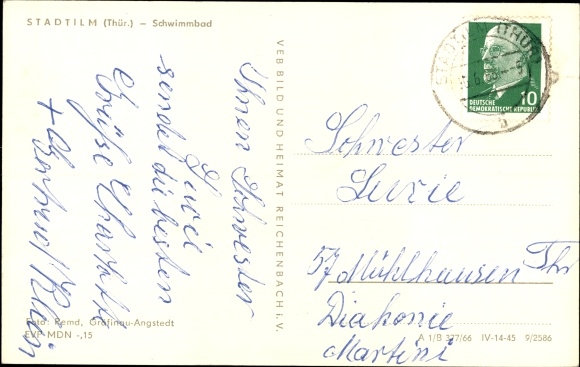 STADTILM (Thür.) – Schwimmbad
Ihnen Schwester
Luzie
sendet die besten
Grüße Charlotte
+ Klein
Foto: Remd, Gräfinau-Angstedt
EVP MDN -,15
VEB BILD UND HEIMAT REICHENBACH i. V.
10
DEUTSCHE
DEMOKRATISCHE REPUBLIK
b
Schwester
Luzie
57 Mühlhausen Thr
Diakonie
Martini
A 1/B 377/66 IV-14-45 9/2586